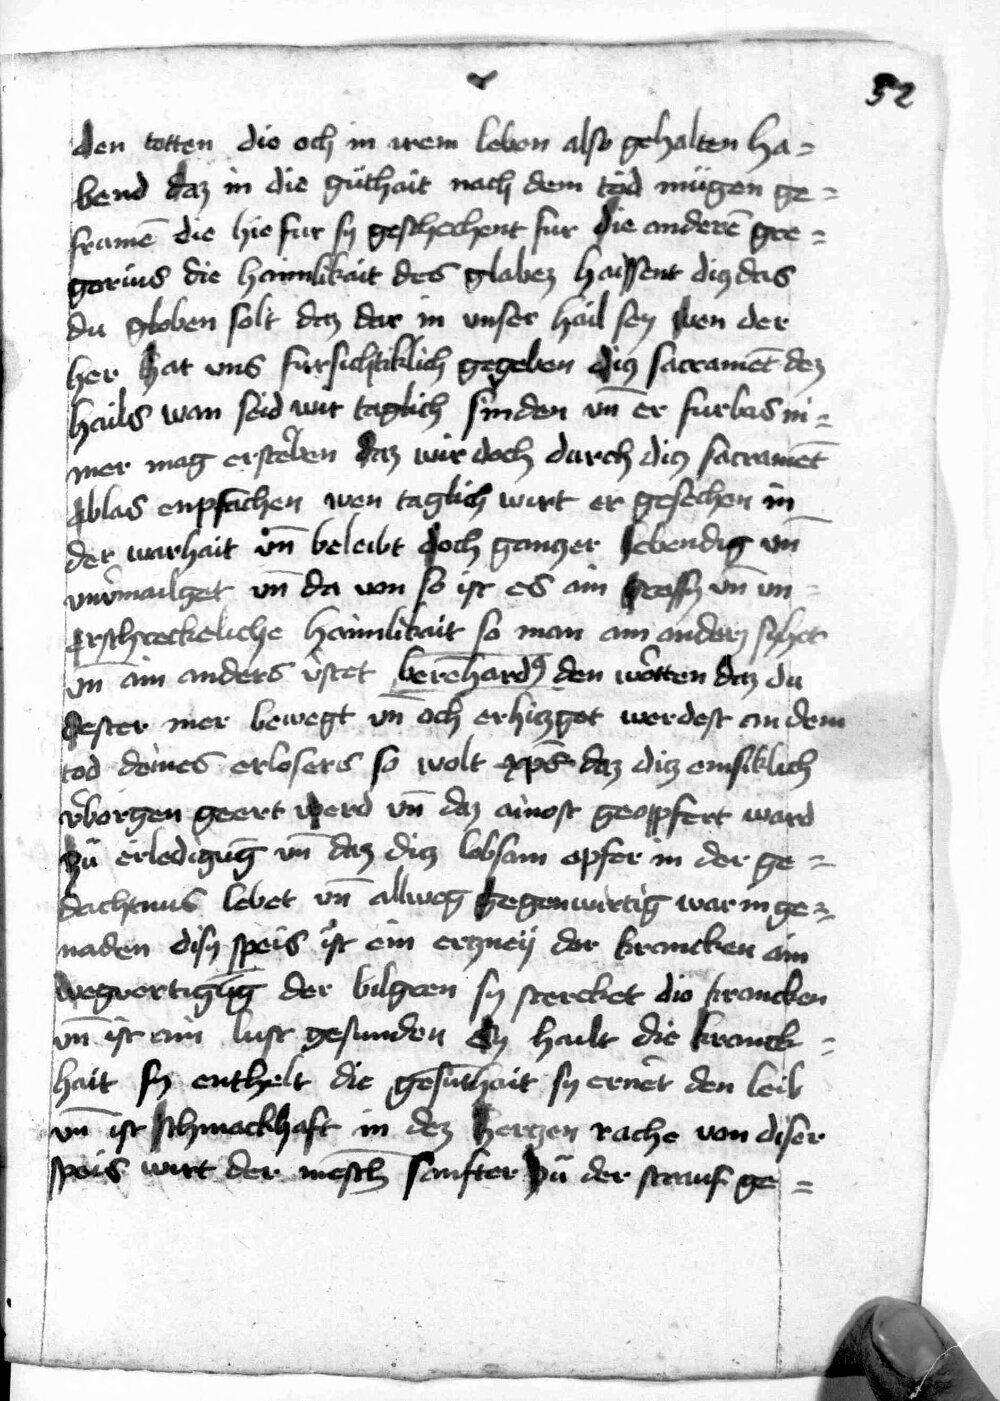 52
den totten die och in irem leben also gehalten ha=
bend daz in die gůthait nach dem tod mügen ge=
framē die hie fur sy geschechent fur die anderē gre=
gorius die haimlikait des glabez haissent diz das
du globen solt daz dar in unser hail sey wen der
her hat uns fursichtiklich gegeben diz sacramēt dez
hails wan seid wir taglich sünden vn̄ er furbas ni=
mer mag ersterben daz wir doch durch diz sacramēt
ablas enpfachen wen taglich wirt er gesechen in
der warhait vn̄ beleibt doch ganczer lebendig vn̄
unv̄mailget vn̄ da von so ist es ain vn̄ un=
erschreckeliche haimlikait so man ain anderz syhet
vn̄ ain anders v̄stet berēhardꝰ den wōrten daz du
dester mer bewegt vn̄ och erhizget werdest an dem
tod deines erlosers so wolt xp̄s daz diz emsiklich
v̄borgen geert werd vn̄ daz ainost geopfert ward
zů erledigūg vn̄ daz diz lobsam opfer in der ge=
dachtnus lebet vn̄ allweg gegenwirtig war in ge=
naden disy speis ist ein erzneÿ der krancken ain
wegvertigūg der bilgren sy stercket die krancken
vn̄ ist ain lust gesunden Sy hailt die kranck=
hait sy enthelt die gesūthait sy ernēt den leib
vn̄ ist schmackhaft in dez herzen rache von diser
speis wirt der mēsch sanfter zů der straf ge=